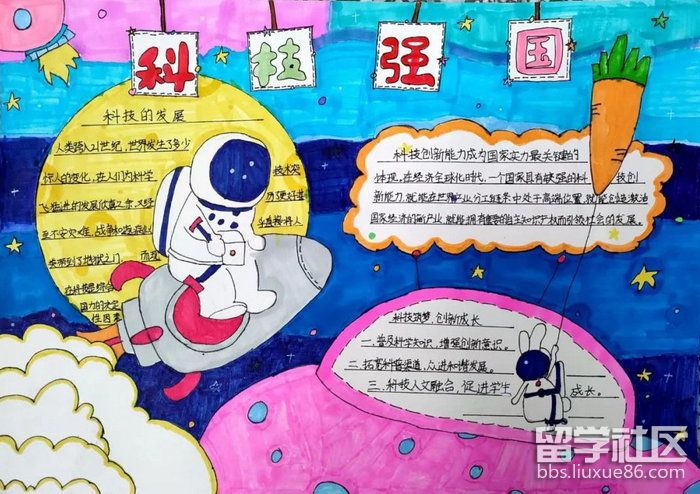 科技强国
科技的发展
人类跨入21世纪，世界发生了多少
惊人的变化，在人们为科学
技术突
飞猛进的发展欣喜之余，又经
历
至不安灾难，战争和
类带到了地狱之门。而
在科技是综合
国力的决定
性因素
科技创新能力成为国家实力最关键的
体现，在经济全球化时代，一个国家具有较强的科技创
新能力，就能在世界产业分工链条中处于高端位置，就能创造激活
国家经济的新产业，就能拥有重要的自主知识产权而引领社会的发展。
科技筑梦，创新成长
一、普及科学知识，增强创新意识。
二、拓宽科普渠道，众进和谐发展。
三、科技人文融合，促进学生成长。
留学社区
bbs.liuxue86.com